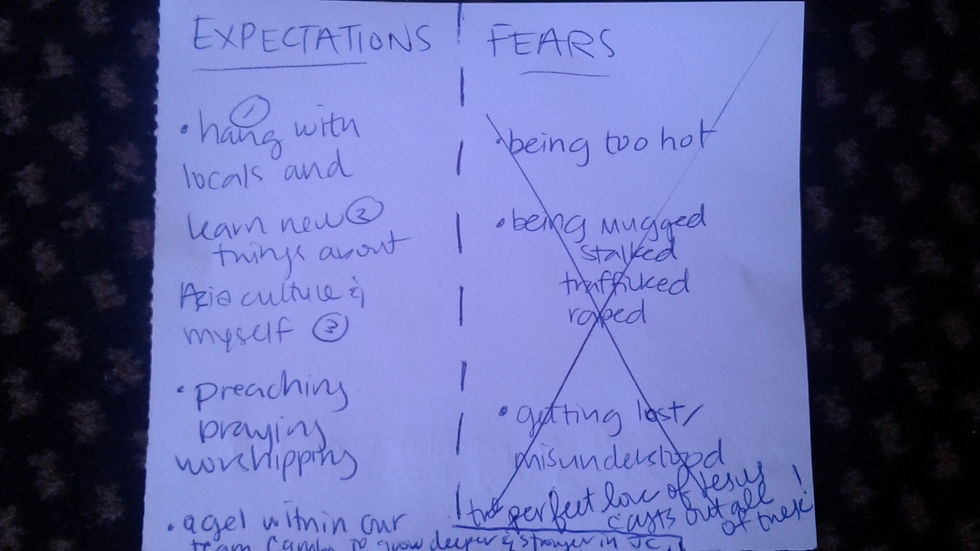 EXPECTATIONS
• hang ① with
locals and
learn new ②
things about
Azia culture &
myself ③
• preaching
praying
worshipping
• a gel within our
to grow deeper & stronger in JC
FEARS
• being too hot
• being mugged
stalked
trafficked
raped
• getting lost/
misunderstood
the perfect love of Jesus
casts out all
of these!